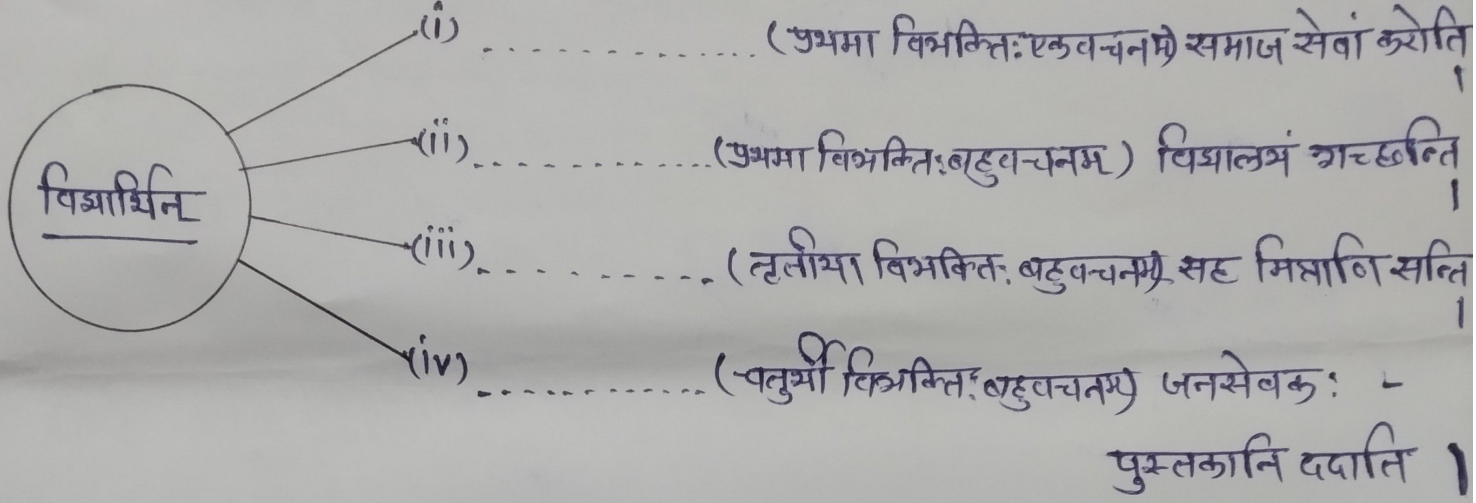 (i) ............... (प्रथमा विभक्ति: एकवचनम्) समाज सेवां करोति ।
(ii) ............... (प्रथमा विभक्ति: बहुवचनम्) विद्यालयं गच्छन्ति ।
विद्यार्थिन्
(iii) ............... (तृतीया विभक्ति: बहुवचनम्) सह मित्राणि सन्ति ।
(iv) ............... (चतुर्थी विभक्ति: बहुवचनम्) जनसेवक: -
पुस्तकानि ददाति ।